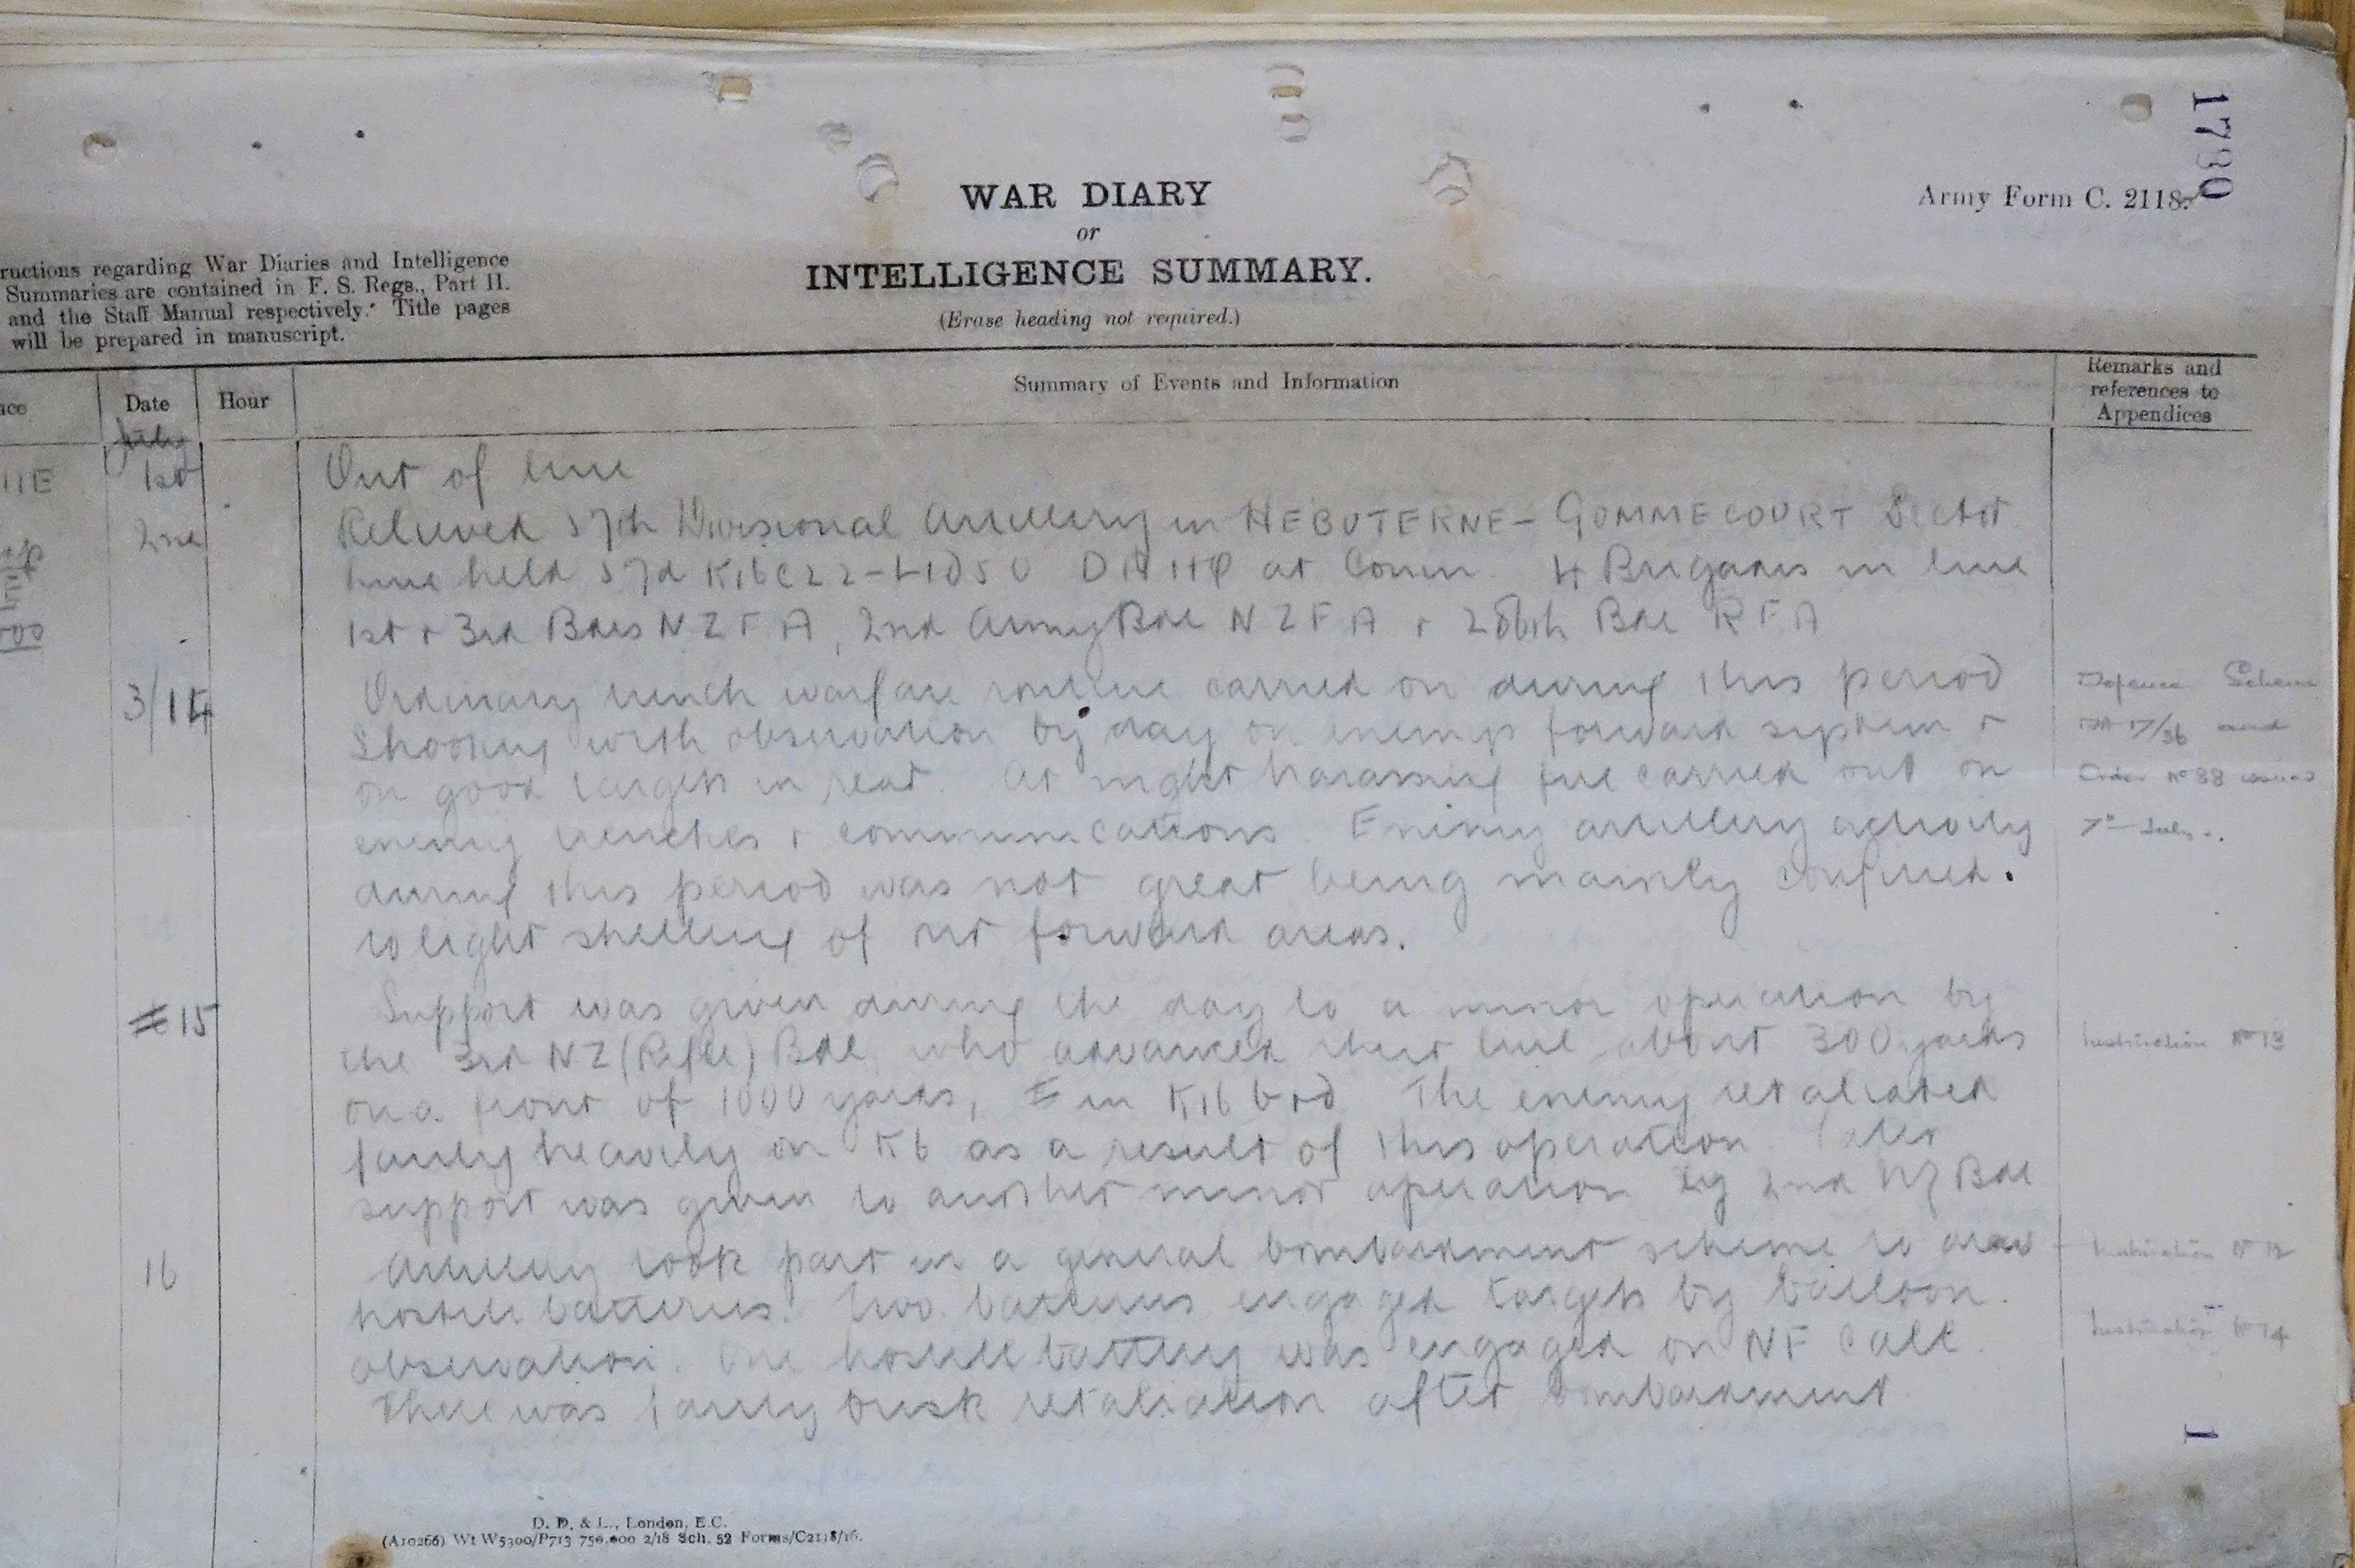 1780
WAR DIARY
Army Form C. 2118.
or
INTELLIGENCE SUMMARY.
(Erase heading not required.)
ructions regarding War Diaries and Intelligence
Summaries are contained in F. S. Regs., Part II.
and the Staff Manual respectively. Title pages
will be prepared in manuscript.
ace Date Hour Summary of Events and Information Remarks and references to Appendices
July
1st Out of line
2nd Relieved 57th Divisional Artillery in HEBUTERNE - GOMMECOURT Sector
Line held 57d K16c22 - DA HQ at Couin. 4 Brigades in line
1st + 3rd Bdes NZFA, 2nd Army Bde NZFA + Bde RFA
3/14 Ordinary trench warfare routine carried on during this period Defence Scheme
Shooting with observation by day on enemy forward system + and
on good targets in rear. At night harassing fire carried out on Order No 38 issued
enemy trenches + communications. Enemy artillery activity 7th July.
during this period was not great being mainly confined.
to light shelling of our forward areas.
15 Support was given during the day to a minor operation by
the 3rd NZ (Rifle) Bde who advanced their line about 300 yards Instruction No 13
on a front of 1000 yards, in K16 b+d The enemy retaliated
fairly heavily on K6 as a result of this operation. Later
support was given to another minor operation by 2nd NZ Bde
16 Artillery took part in a general bombardment scheme to draw Instruction No 12
hostile batteries. Two batteries engaged targets by balloon.
observation. One hostile battery was engaged on NF call. Instruction No 14
There was fairly brisk retaliation after bombardment
1
D. D. & L., London, E.C.
(A10266) Wt W5300/P713 750,000 2/18 Sch. 52 Forms/C2118/16.